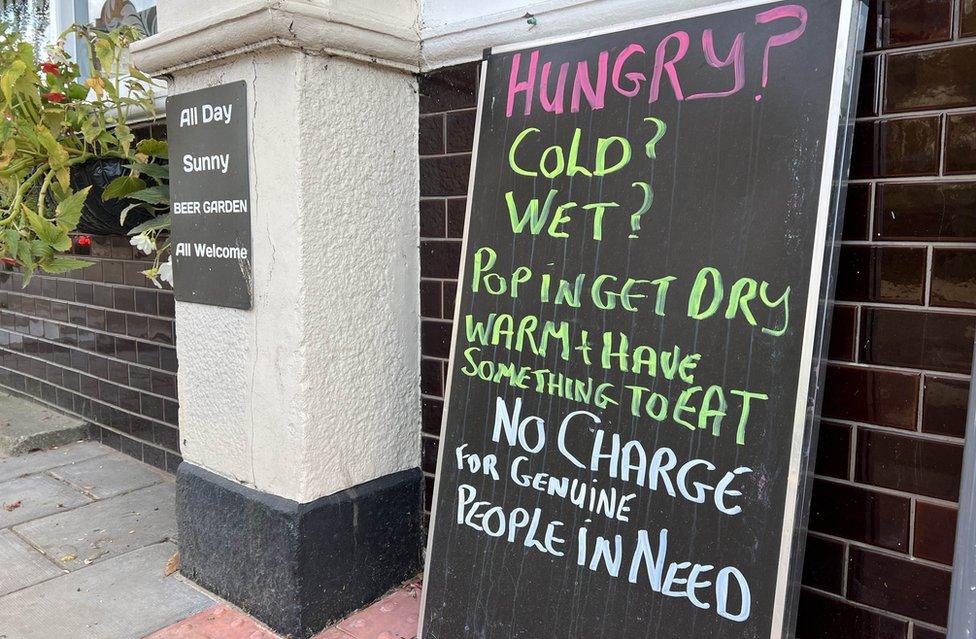 All Day
Sunny
BEER GARDEN
All Welcome
HUNGRY?
COLD?
WET?
POP IN GET DRY
WARM + HAVE
SOMETHING TO EAT
NO CHARGE
FOR GENUINE
PEOPLE IN NEED